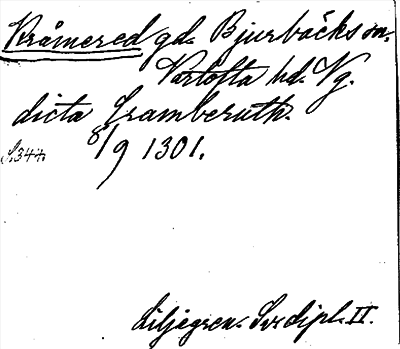 Kråmered gd. Bjurbäcks sn.
Vartofta hd. Vg.
dicta Cramberuth.
S.344. 8/9 1301.
Liljegren. Sv. dipl. II.